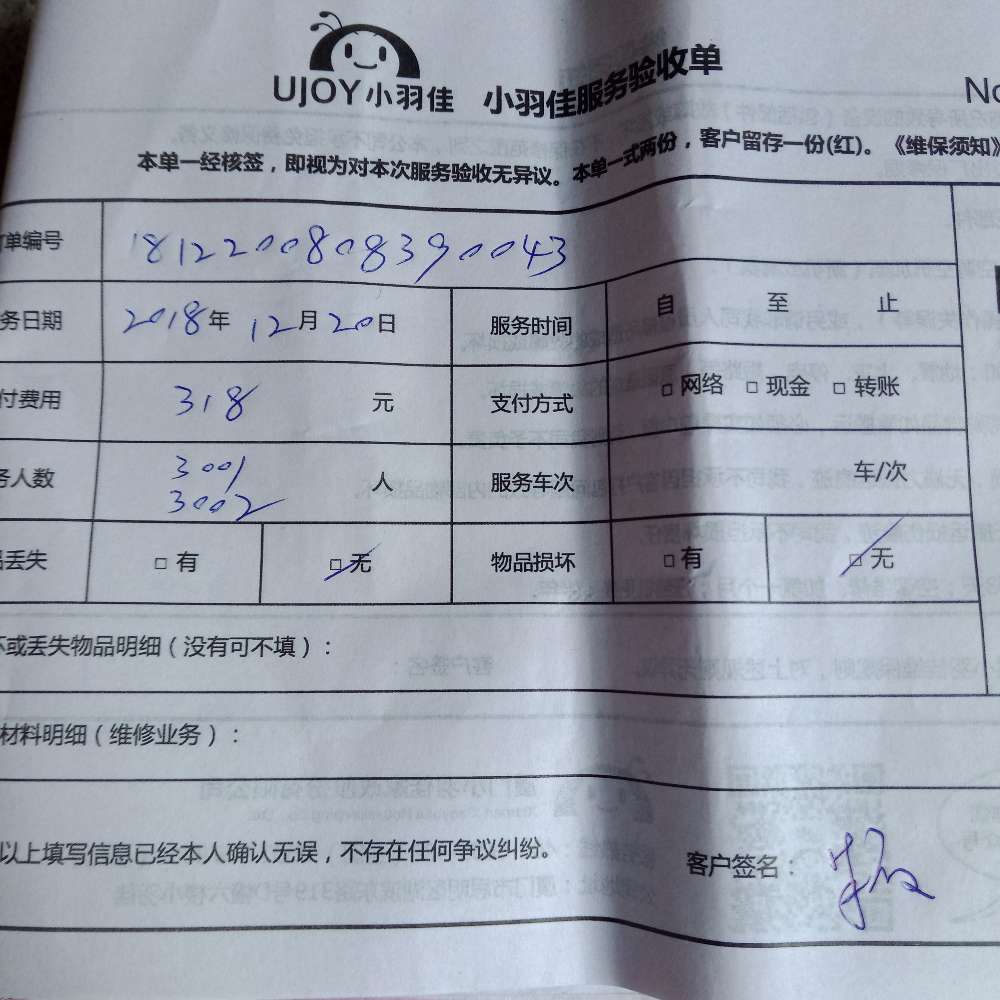 UJOY小羽佳 小羽佳服务验收单
No
本单一经核签，即视为对本次服务验收无异议。本单一式两份，客户留存一份(红)。《维保须知》
单编号 1812200808390043
务日期 2018年12月20日 服务时间 自 至 止
付费用 318 元 支付方式 □网络 □现金 □转账
务人数 3001 人 服务车次 车/次
3002
品丢失 □有 □无 物品损坏 □有 □无
坏或丢失物品明细（没有可不填）：
材料明细（维修业务）：
以上填写信息已经本人确认无误，不存在任何争议纠纷。
客户签名：